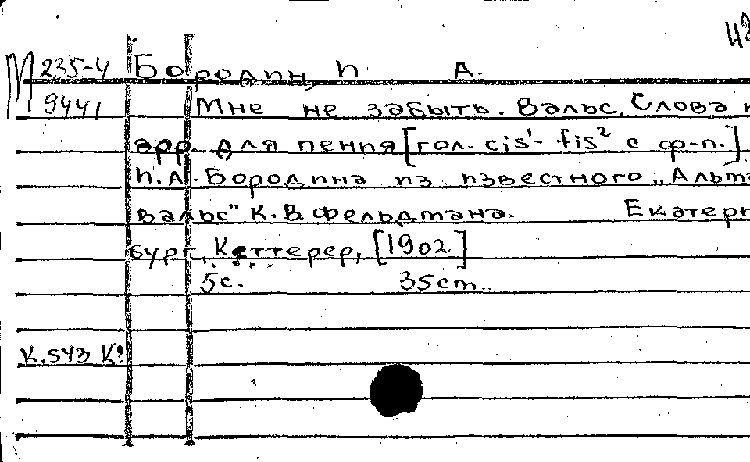 42
М 235-4 Бородин, П. А.
9441 Мне не забыть. Вальс. Слова и
арр. для пения [гол. cis¹- fis² с ф-п.]
П.А. Бородина из известного „Альма
вальс" К. В. Фельдмана. Екатерин
бург, Кеттерер, [1902.]
5с. 35cm.
К.543 К?